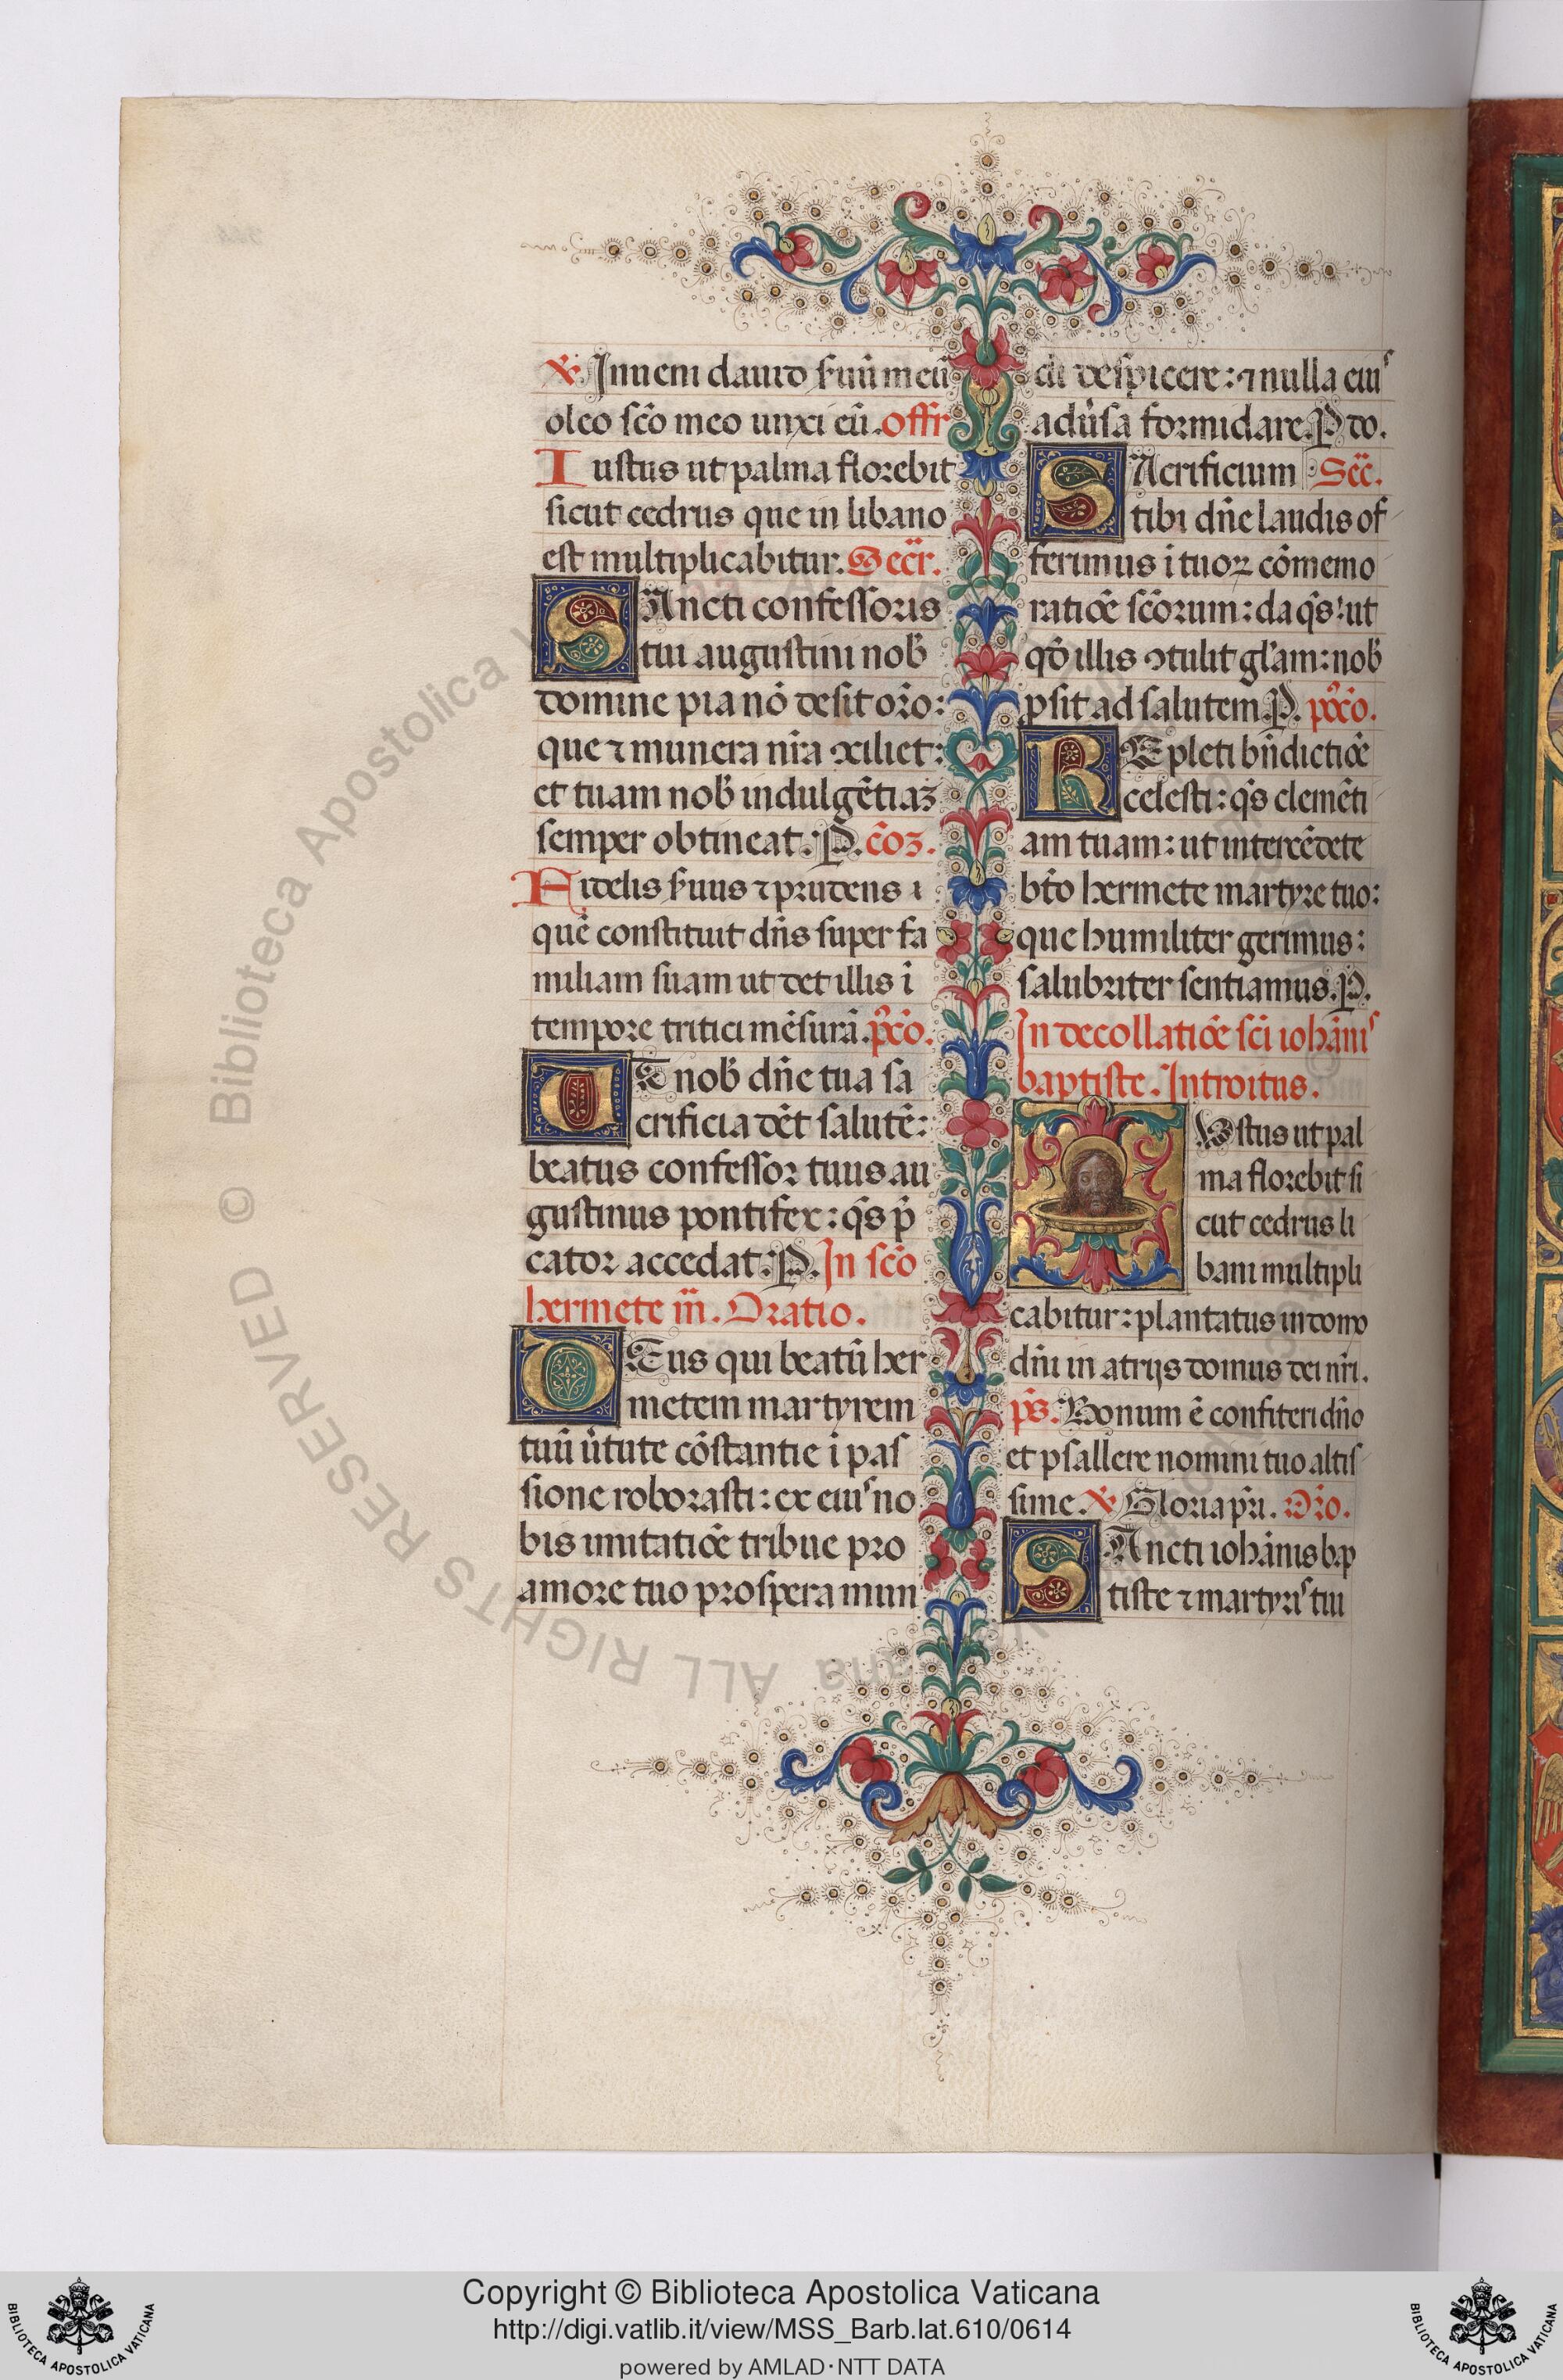 ℣. Inueni dauid ẜuũ meũ
oleo sc̃o meo unxi eũ. Offr̃
Iustus ut palma florebit
sicut cedrus que in libano
est multiplicabitur. Secr̃.
SAncti confessoris
tui augustini nob̃
domine pia nõ desit or̃o:
que ⁊ munera nr̃a ꝯciliet:
et tuam nob̃ indulgẽtiaꝫ
semper obtineat. P. cõꝫ.
Fidelis ẜuus ⁊ prudens
quẽ constituit dñs super fa
miliam suam ut det illis ĩ
tempore tritici mẽsurã. p̃c̃o.
UT nob̃ dñe tua sa
crificia dẽt salutẽ:
beatus confessor tuus au
gustinus pontifex: q̃s p̃
cator accedat. P. In sc̃o
hermete m̃. Oratio.
DEus qui beatũ her
metem martyrem
tuũ ũtute cõstantie ĩ pas
sione roborasti: ex eiuˢ no
bis imitatiõe tribue pro
amore tuo prospera mun
di despicere: ⁊ nulla eiuˢ
adũsa formidare. P do.
SAcrificium Sec̃.
tibi dñe laudis of
ferimus ĩ tuoꝝ cõmemo
ratiõe sc̃orum: da q̃s: ut
qđ illis ꝯtulit gl̃am: nob̃
ꝓsit ad salutem. P. p̃c̃o.
REpleti bñdictiõe
celesti: q̃s clemẽti
am tuam: ut intercẽdete
bt̃o hermete martyre tuo:
que humiliter gerimus:
salubriter sentiamus. P.
In decollatiõe sc̃i iohãniˢ
baptiste. Introitus.
Ustus ut pal
ma florebit si
cut cedrus li
bani multipli
cabitur: plantatus in domo
dñi in atrijs domus dei nr̃i.
p̃s. Bonum ẽ confiteri dño
et psallere nomini tuo altis
sime. ℣. Gloria pr̃i. Or̃o.
SAncti iohãnis bap
tiste ⁊ martyriˢ tui
© Biblioteca Apostolica Vaticana ALL RIGHTS RESERVED
Copyright © Biblioteca Apostolica Vaticana
http://digi.vatlib.it/view/MSS_Barb.lat.610/0614
powered by AMLAD·NTT DATA
BIBLIOTECA APOSTOLICA VATICANA
BIBLIOTECA APOSTOLICA VATICANA